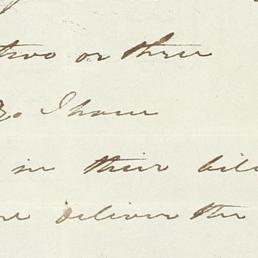 two or three
I have
in their
deliver the